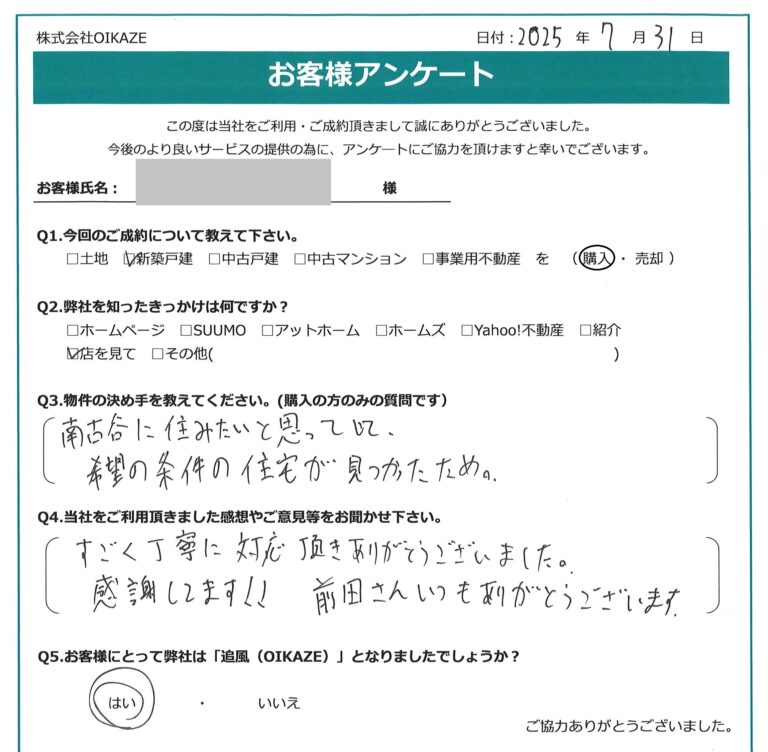 株式会社OIKAZE
日付:2025 年 7 月 31 日
お客様アンケート
この度は当社をご利用・ご成約頂きまして誠にありがとうございました。
今後のより良いサービスの提供の為に、アンケートにご協力を頂けますと幸いでございます。
お客様氏名: 様
Q1.今回のご成約について教えて下さい。
□土地 ☑新築戸建 □中古戸建 □中古マンション □事業用不動産 を (購入・売却)
Q2.弊社を知ったきっかけは何ですか?
□ホームページ □SUUMO □アットホーム □ホームズ □Yahoo!不動産 □紹介
☑店を見て □その他( )
Q3.物件の決め手を教えてください。(購入の方のみの質問です)
南古谷に住みたいと思っていて、
希望の条件の住宅が見つかったため。
Q4.当社をご利用頂きました感想やご意見等をお聞かせ下さい。
すごく丁寧に対応頂きありがとうございました。
感謝してます!! 前田さんいつもありがとうございます
Q5.お客様にとって弊社は「追風(OIKAZE)」となりましたでしょうか?
はい ・ いいえ
ご協力ありがとうございました。